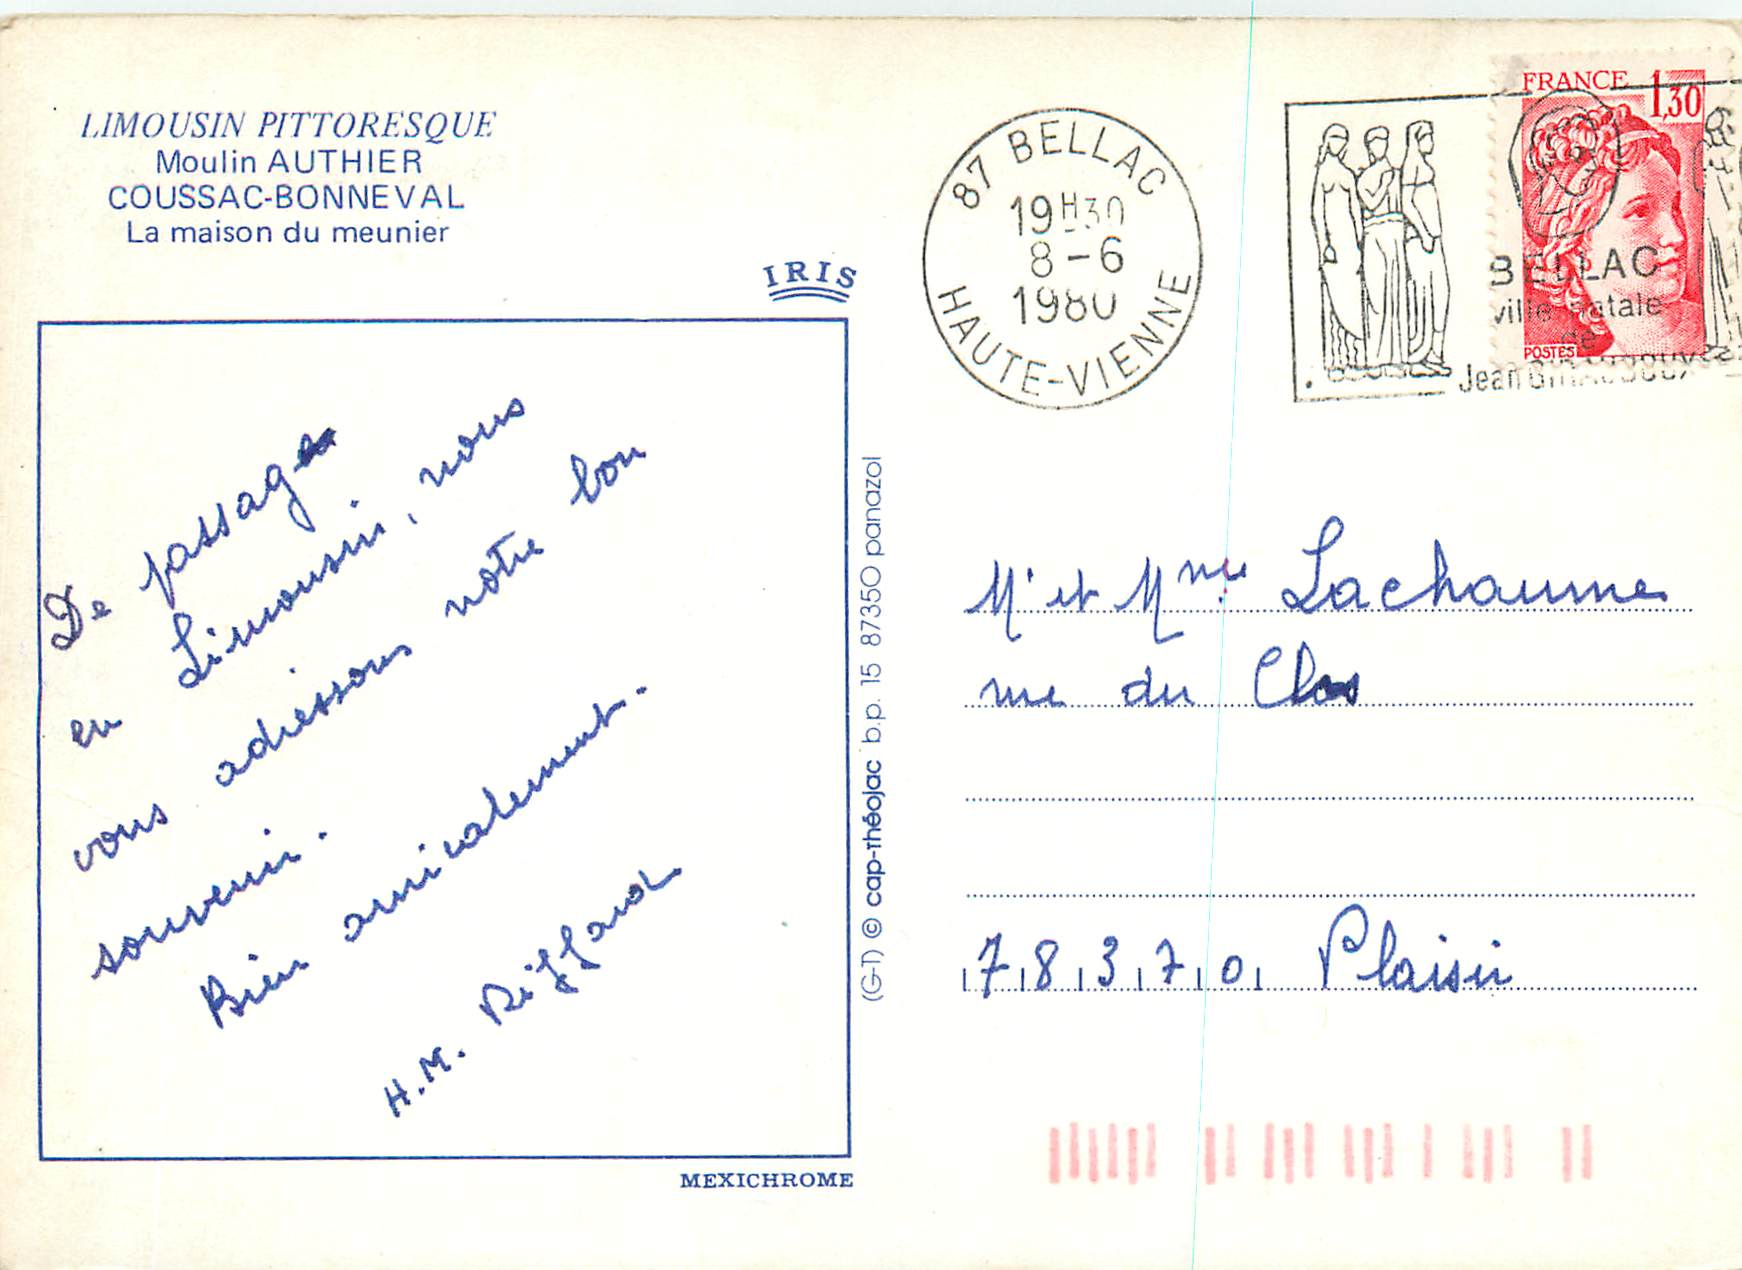 LIMOUSIN PITTORESQUE
Moulin AUTHIER
COUSSAC-BONNEVAL
La maison du meunier
IRIS
De passage
en Limousin, nous
vous adressons notre bon
souvenir.
Bien amicalement.
H.M. Riffard
MEXICHROME
(G-T) © cap-théojac b.p. 15 87350 panazol
87 BELLAC
19H30
8-6
1980
HAUTE-VIENNE
FRANCE 1,30
POSTES
BELLAC
ville natale
de
Jean GIRAUDOUX
Mr et Mme Lachaume
rue du Clos
78370 Plaisir